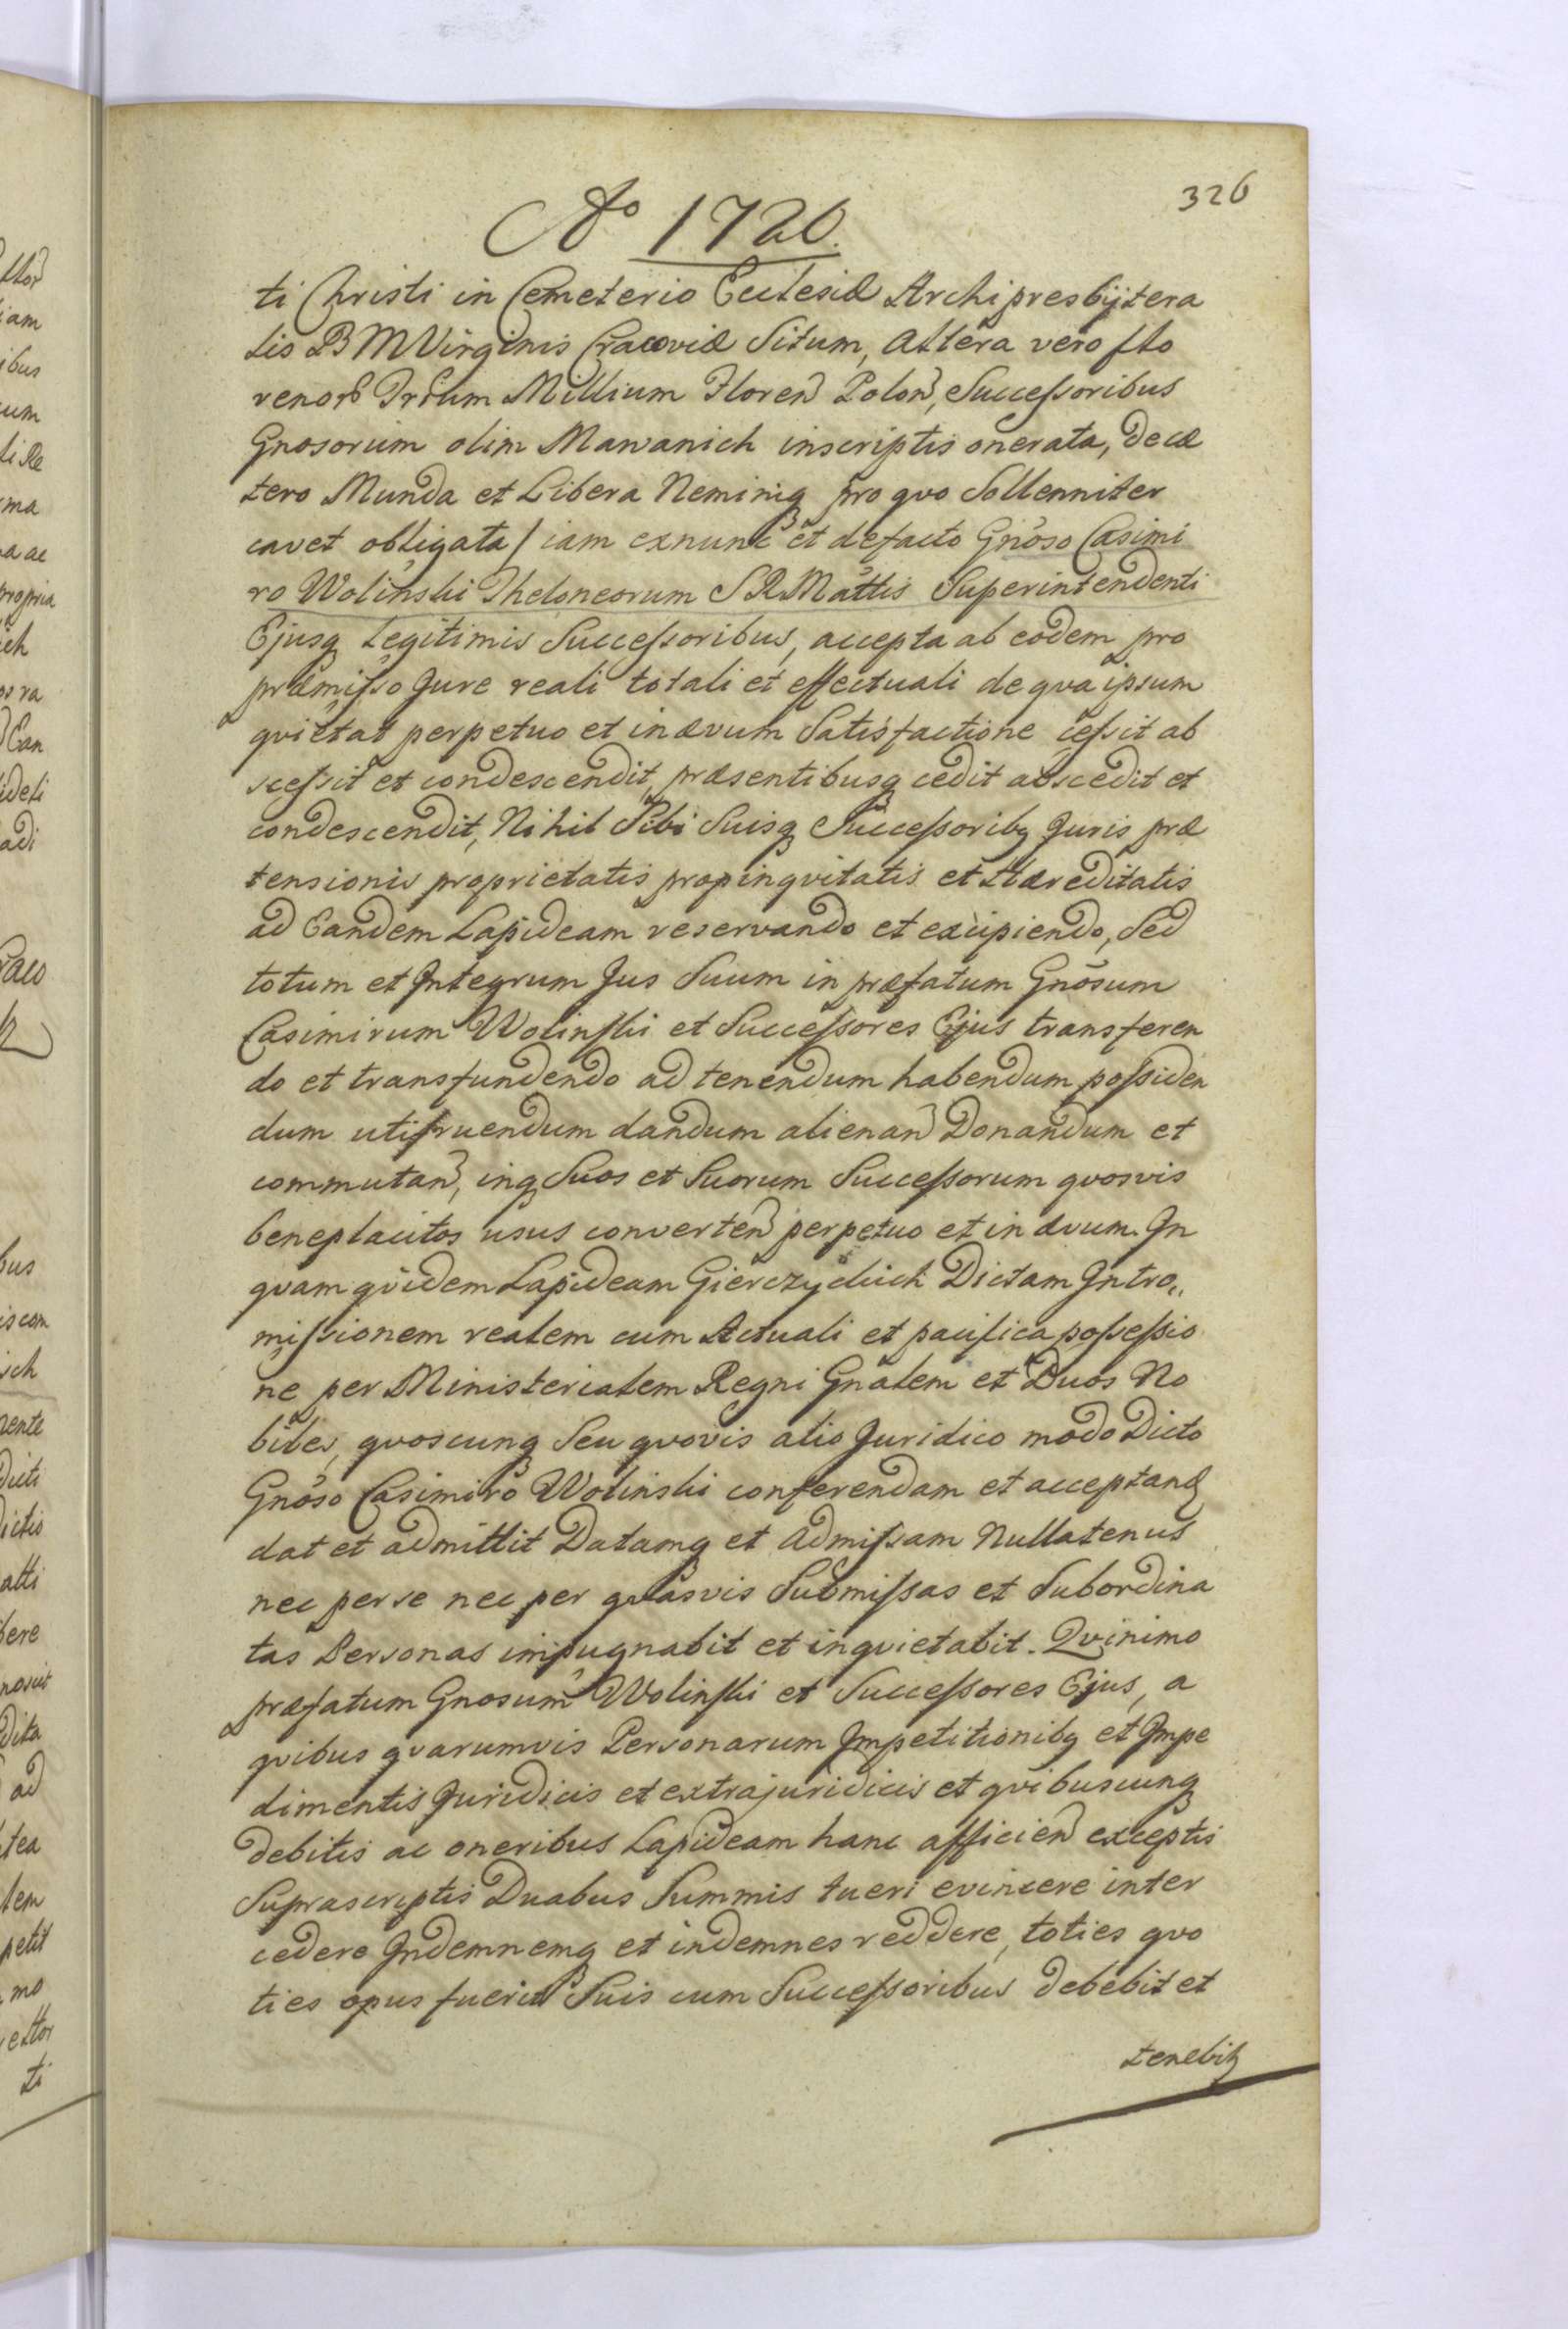 326
Ao 1726.
ti Christi in Cemeterio Ecclesiæ Archipresbÿtera
lis B M Virginis Cracoviæ Situm, Altera vero flo
renor Trium Millium Floren Polon, Successoribus
Gnosorum olim Mawanich inscriptis onerata, de cæ
tero Munda et Libera Neminiq pro quo Sollenniter
cavet obligata / iam exnunc et defacto Gnoso Casimi
ro Wolinski Theloneorum S R Mattis Superintendenti
Ejusq Legitimis Successoribus, accepta ab eodem pro
præmisso Jure reali totali et effectuali de qva ipsum
qvietat perpetuo et in ævum Satisfactione cessit ab
scessit et condescendit, præsentibusq cedit abscedit et
condescendit, Nihil Sibi Suisq Successoribq Juris præ
tensionis proprietatis propinqvitatis et Hæreditatis
ad Eandem Lapideam reservando et excipiendo, Sed
totum et Integrum Jus Suum in præfatum Gnosum
Casimirum Wolinski et Successores Ejus transferen
do et transfundendo ad tenendum habendum possiden
dum utifruendum dandum alienan Donandum et
commutan, inq Suos et Suorum Successorum qvosvis
beneplacitos usus converten perpetuo et in ævum. In
qvam qvidem Lapideam Gierczyckich Dictam Intro„
missionem realem cum Actuali et pacifica possessio
ne per Ministerialem Regni Gnalem et Duos No
biles, qvoscunq Seu qvovis alio Juridico modo Dicto
Gnoso Casimiro Wolinski conferendam et acceptand
dat et admittit Datamq et Admissam Nullatenus
nec per se nec per qvasvis Submissas et Subordina
tas Personas impugnabit et inqvietabit. Qvinimo
præfatum Gnosum Wolinski et Successores Ejus, a
qvibus qvarumvis Personarum Impetitionibq et Impe
dimentis Juridicis et extrajuridicis et qvibuscunq
debitis ac oneribus Lapideam hanc afficien exceptis
Suprascriptis Duabus Summis tueri evincere inter
cedere Indemnemq et indemnes reddere, toties qvo
ties opus fuerit Suis cum Successoribus debebit et
tenebit